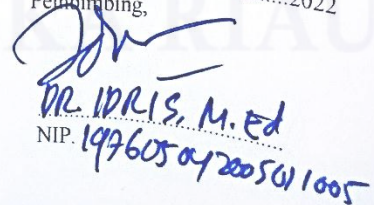 ...............2022
Pembimbing,
DR. IDRIS, M.Ed
NIP. 197605042005011005